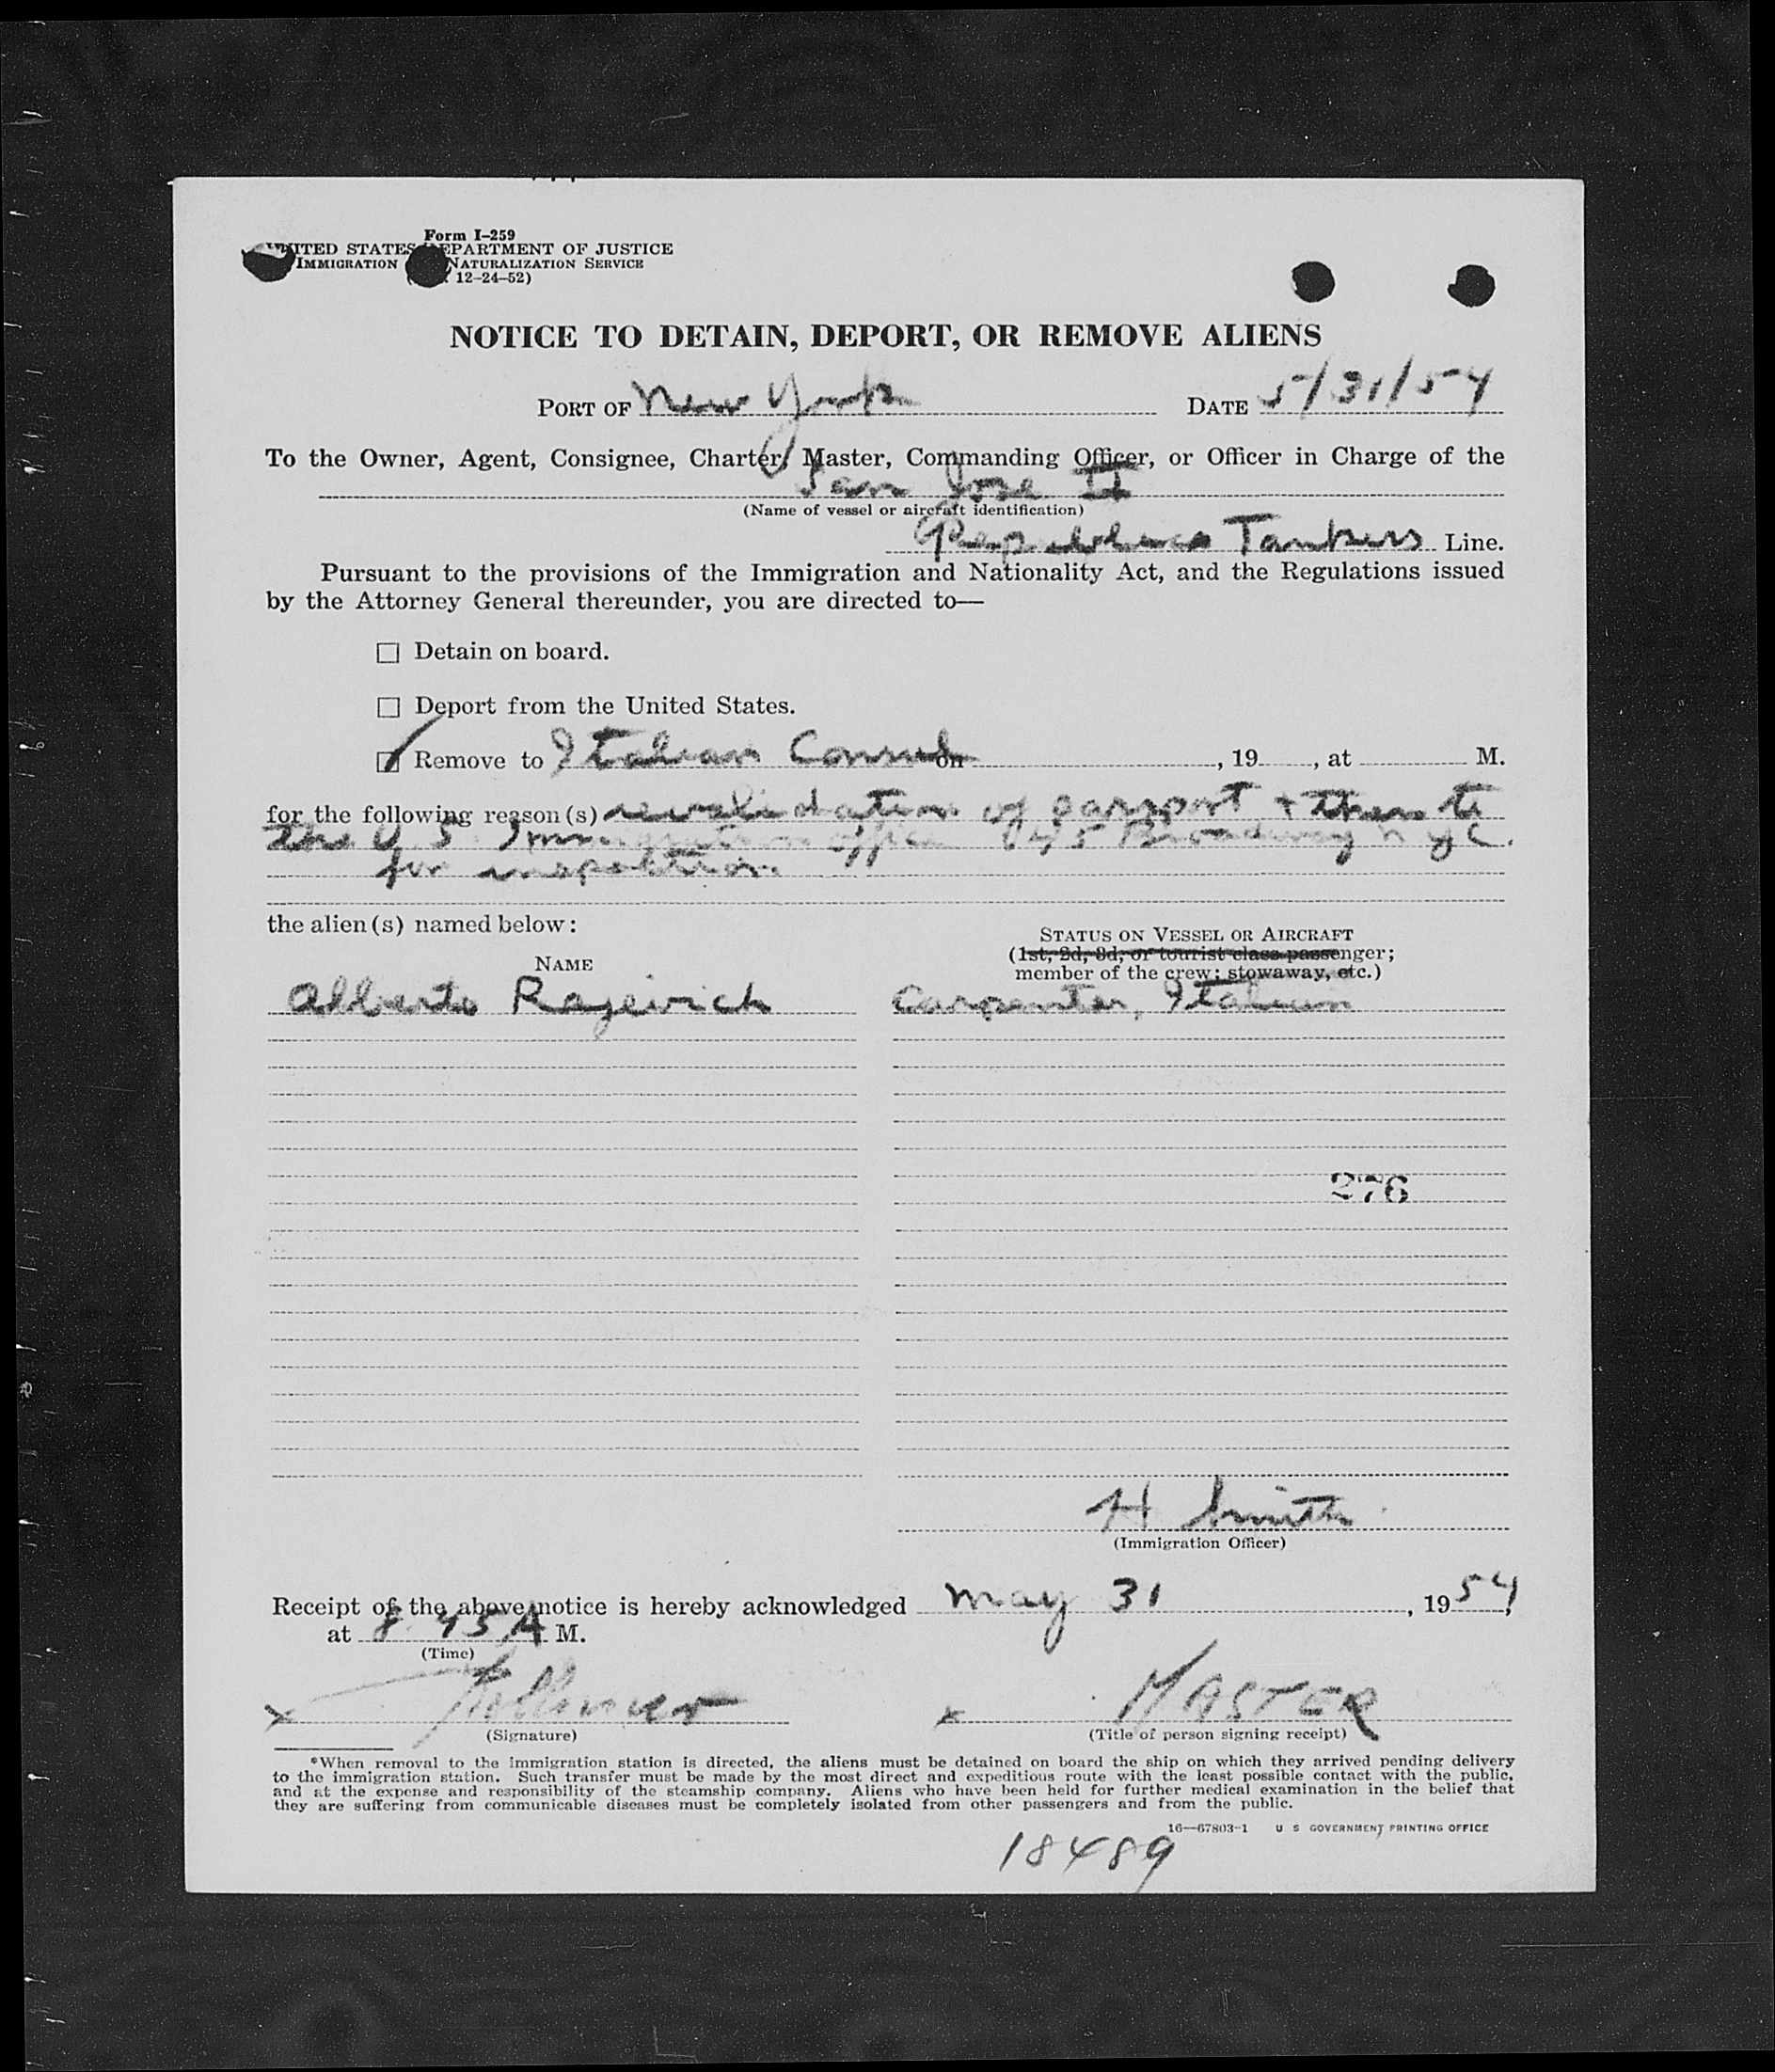 Form I-259
UNITED STATES DEPARTMENT OF JUSTICE
IMMIGRATION NATURALIZATION SERVICE
12-24-52)
NOTICE TO DETAIN, DEPORT, OR REMOVE ALIENS
PORT OF New York DATE 5/31/54
To the Owner, Agent, Consignee, Charter, Master, Commanding Officer, or Officer in Charge of the
San Jose II
(Name of vessel or aircraft identification)
Tankers Line.
Pursuant to the provisions of the Immigration and Nationality Act, and the Regulations issued
by the Attorney General thereunder, you are directed to—
☐ Detain on board.
☐ Deport from the United States.
☑ Remove to Italian Consul on , 19 , at M.
for the following reason(s) revalidation of passport + then to
the U.S. Immigration office Broadway NYC.
for inspection
the alien(s) named below:
STATUS ON VESSEL OR AIRCRAFT
(1st, 2d, 3d, or tourist class passenger;
NAME
member of the crew; stowaway, etc.)
Alberto Ragevich Carpenter, Italian
276
H Smith
(Immigration Officer)
Receipt of the above notice is hereby acknowledged May 31, 1954,
at 8 45 A M.
(Time)
x x MASTER
(Signature) (Title of person signing receipt)
*When removal to the immigration station is directed, the aliens must be detained on board the ship on which they arrived pending delivery
to the immigration station. Such transfer must be made by the most direct and expeditious route with the least possible contact with the public,
and at the expense and responsibility of the steamship company. Aliens who have been held for further medical examination in the belief that
they are suffering from communicable diseases must be completely isolated from other passengers and from the public.
16—67803-1 U S GOVERNMENT PRINTING OFFICE
18489